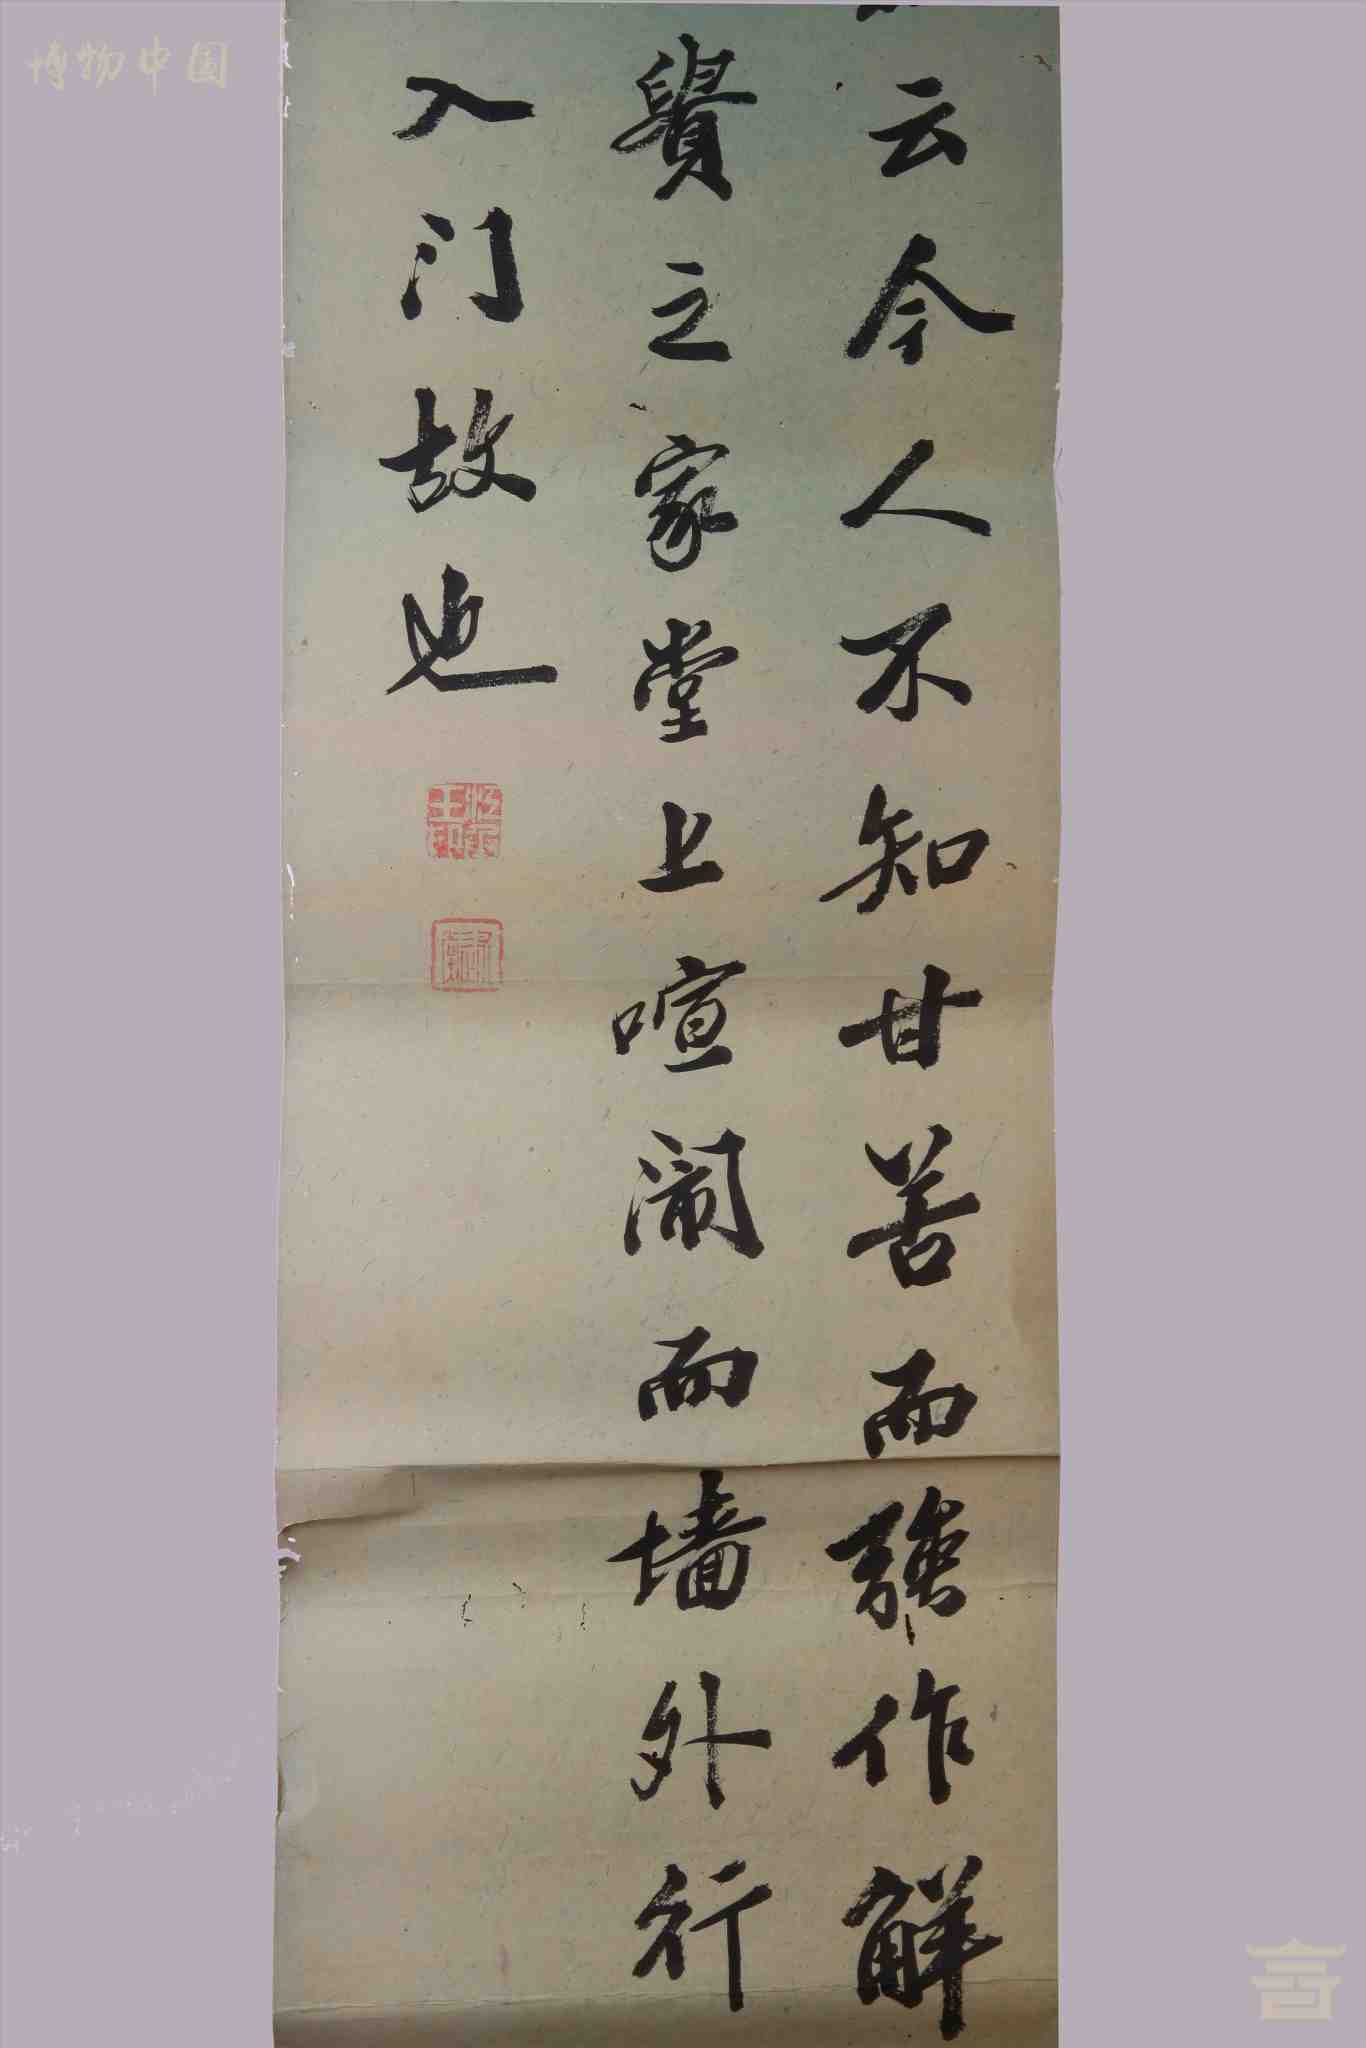 云今人不知甘苦而强作解
譽之家堂上喧闹而墙外行
入门故也
博物中国